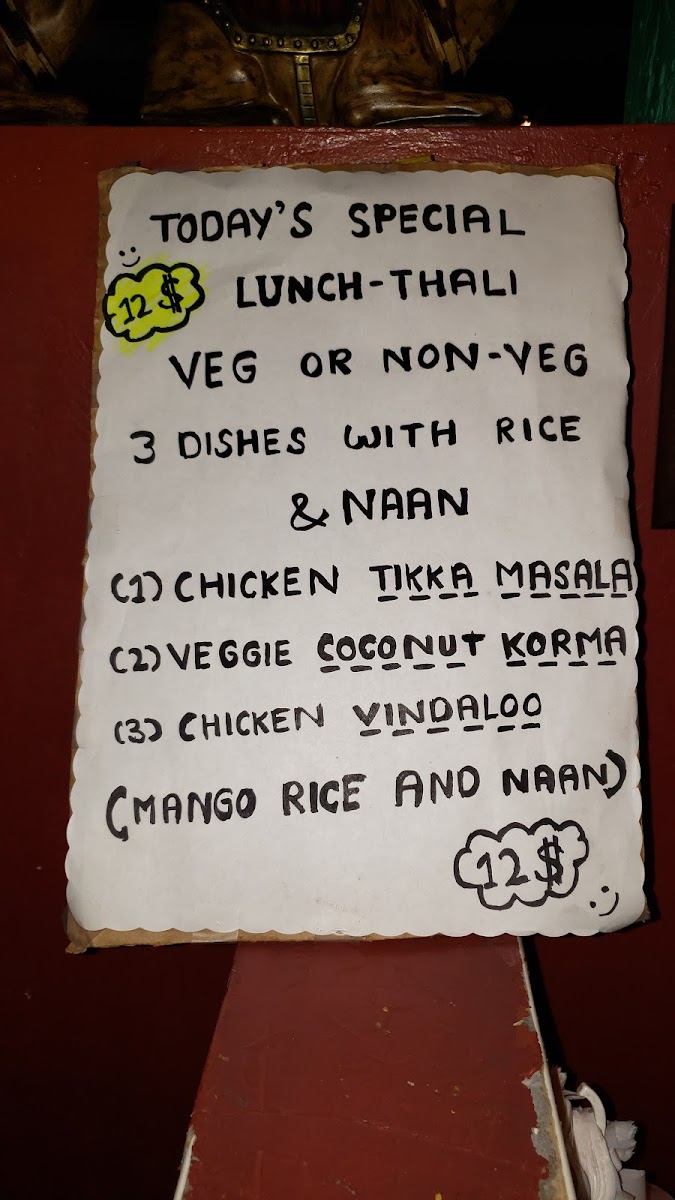 TODAY'S SPECIAL
12$ LUNCH-THALI
VEG OR NON-VEG
3 DISHES WITH RICE
& NAAN
(1) CHICKEN TIKKA MASALA
(2) VEGGIE COCONUT KORMA
(3) CHICKEN VINDALOO
(MANGO RICE AND NAAN)
12$